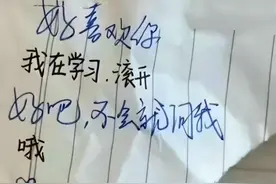 好喜欢你
我在学习,滚开
好吧,不会就问我
哦